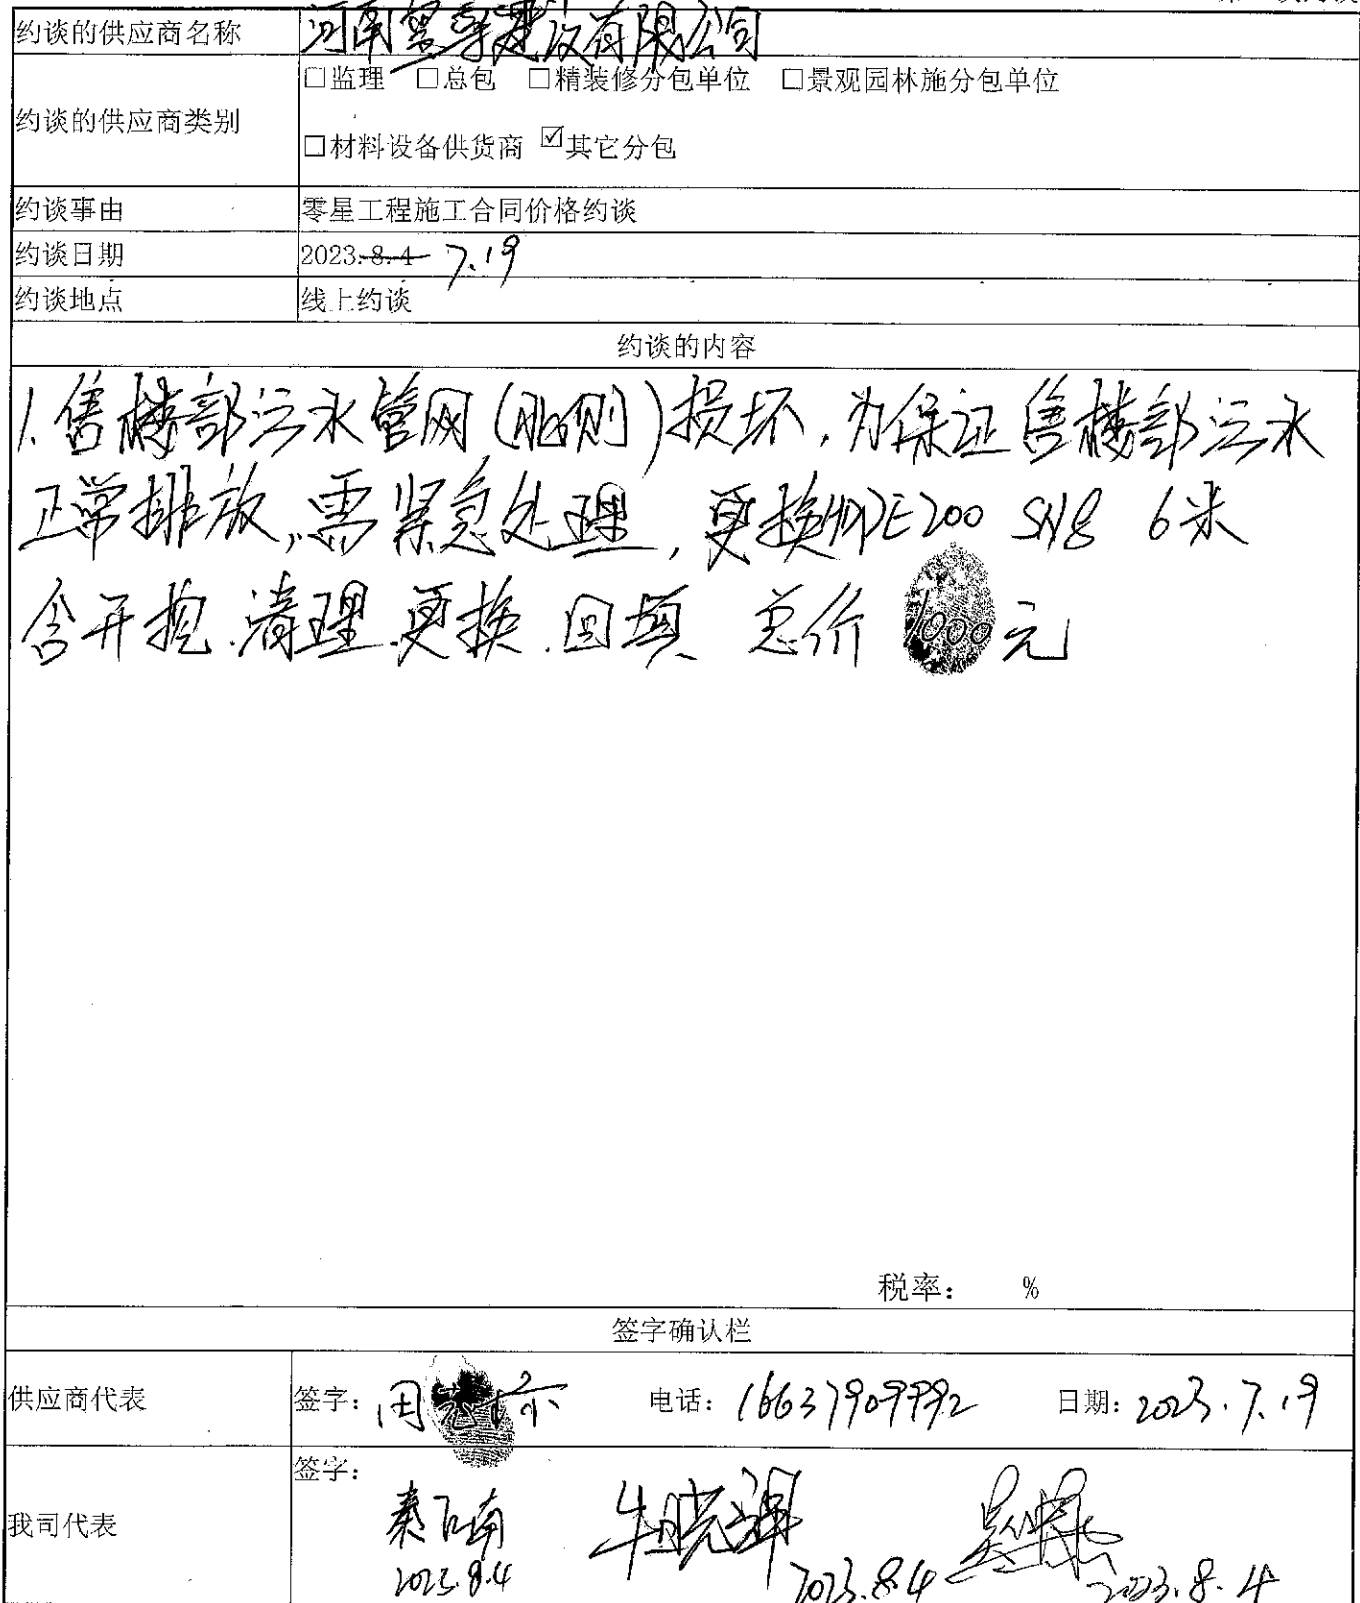 约谈的供应商名称 河南 建设有限公司
约谈的供应商类别 □监理 □总包 □精装修分包单位 □景观园林施分包单位
□材料设备供货商 ☑其它分包
约谈事由 零星工程施工合同价格约谈
约谈日期 2023.8.4 7.19
约谈地点 线上约谈
约谈的内容
1.售楼部污水管网(侧)损坏,为保证售楼部污水
正常排放,需紧急处理,更换HDPE200 SN8 6米
含开挖.清理.更换.回填 总价1000元
税率: %
签字确认栏
供应商代表 签字:周 电话:16637909992 日期:2023.7.19
我司代表 签字:
秦 南 牛晓辉
2023.8.4 2023.8.4 2023.8.4